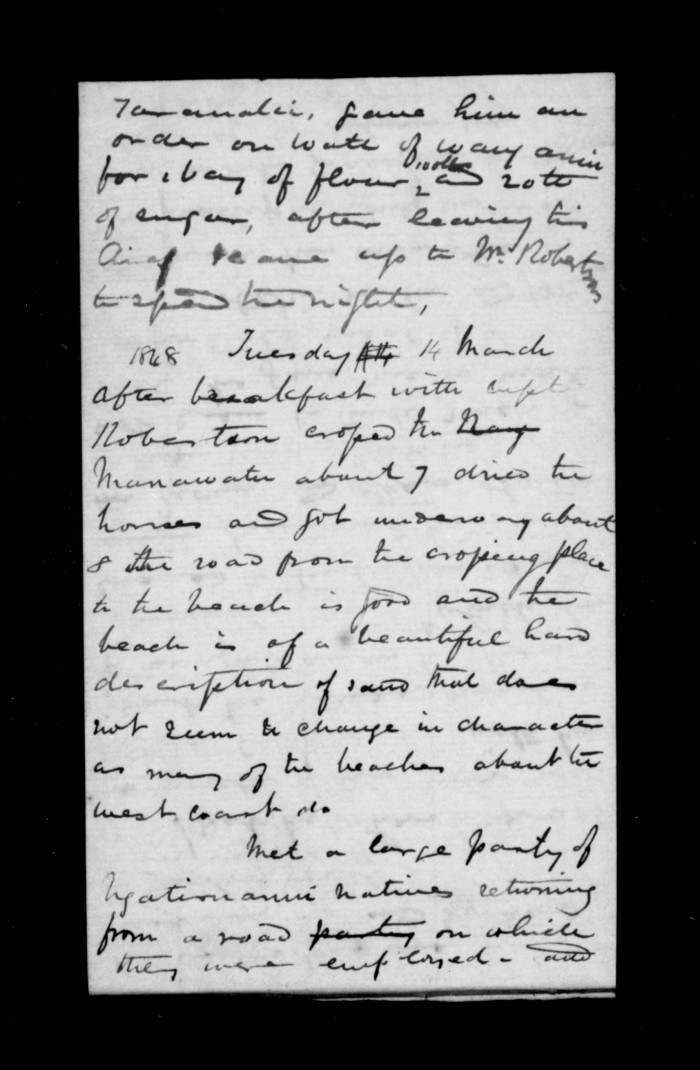 Taranaki, gave him an
order on Watt of Wanganui
for 1 bag of flour, 100lb and 20lb
of sugar, after leaving this
came up to Mr Robertsons
to spend the night,
1848 Tuesday 14 March
After breakfast with Capt
Robertson croped the Nay
Manawatu about 7 dried the
horses and got underway about
8 the road from the croping place
to the beach is good and the
beach is of a beautiful hard
description of sand that does
not seem to change in character
as many of the beaches about the
west coast do
Met a large party of
Ngatiruanui natives returning
from a road party on which
they were employed - and